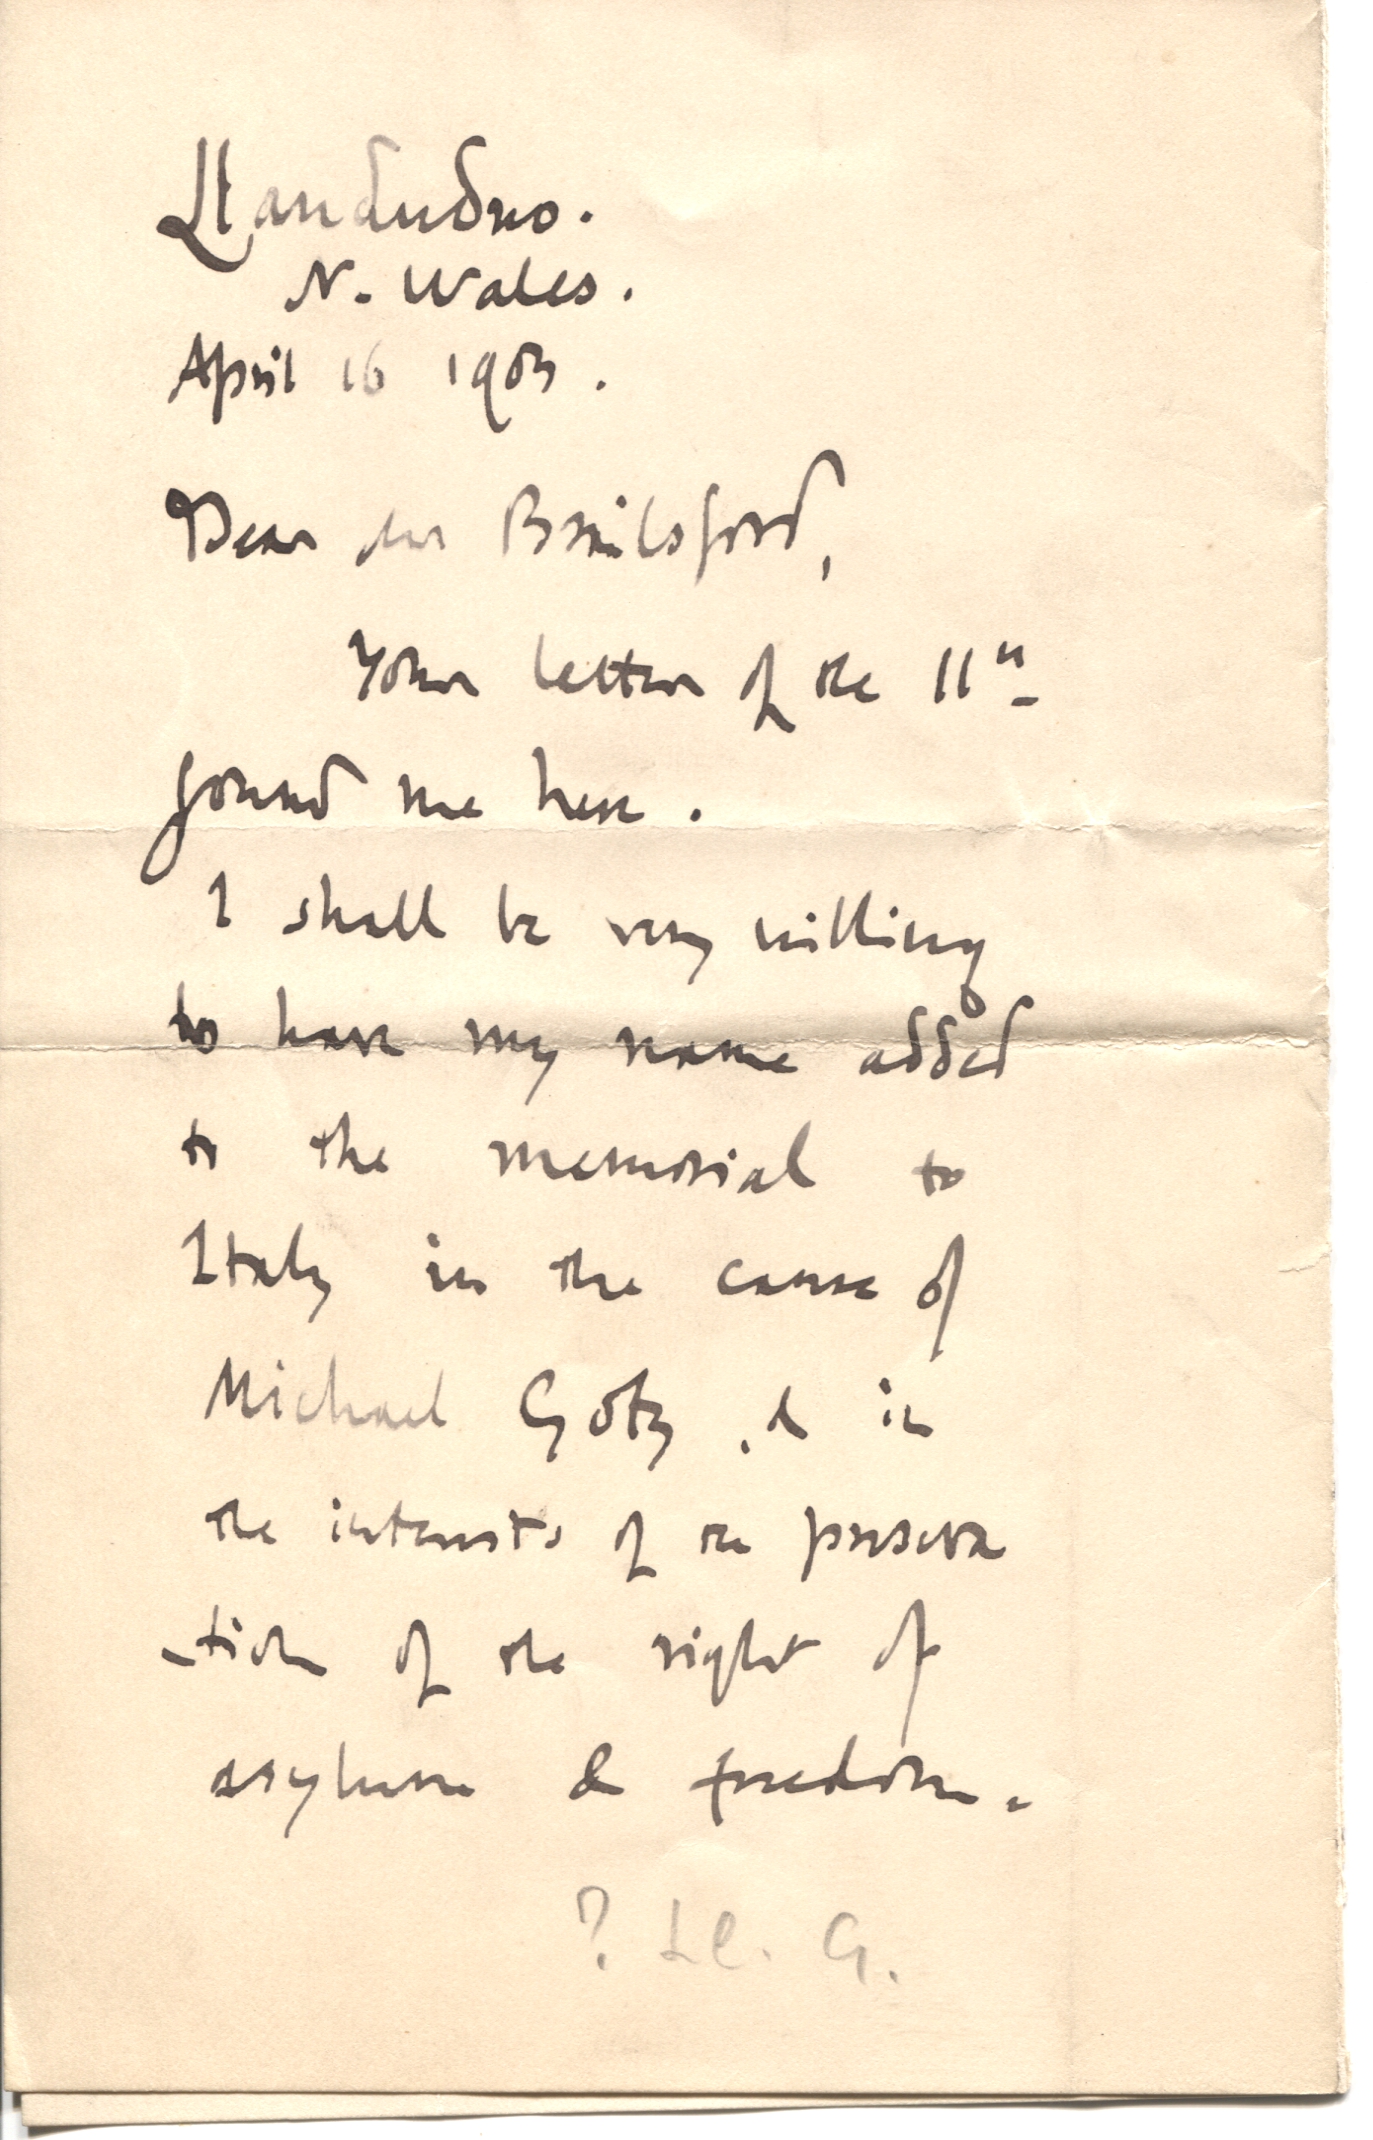 Llandudno.
N. Wales.
April 16 1903.
Dear Mr Brailsford,
Your letter of the 11th
found me here.
I shall be very willing
to have my name added
to the memorial to
Italy in the cause of
Michael Gotz, & in
the interests of the preserva
-tion of the right of
asylum & freedom.
? Ll. G.